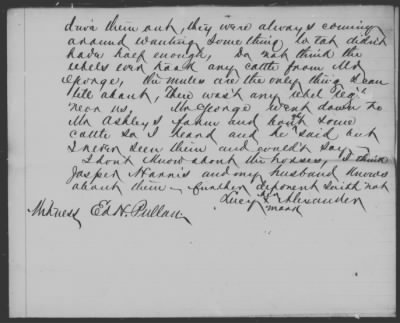 drive them out, they were always coming
around wanting something to eat didn't
have half enough, Do not think the
rebels ever had any cattle from Mr
George, the mules are the only thing I can
tell about, There wasn't any rebel regt
near us, Mr George went down to
Mr Ashleys farm and some
cattle so I heard and he said but
I never seen them and couldn't say
I dont know about the horses, I think
Jasper Harris and my husband knows
about them — further deponent saith not
Lucy X Alexander
mark
Witness Ed N. Pullan